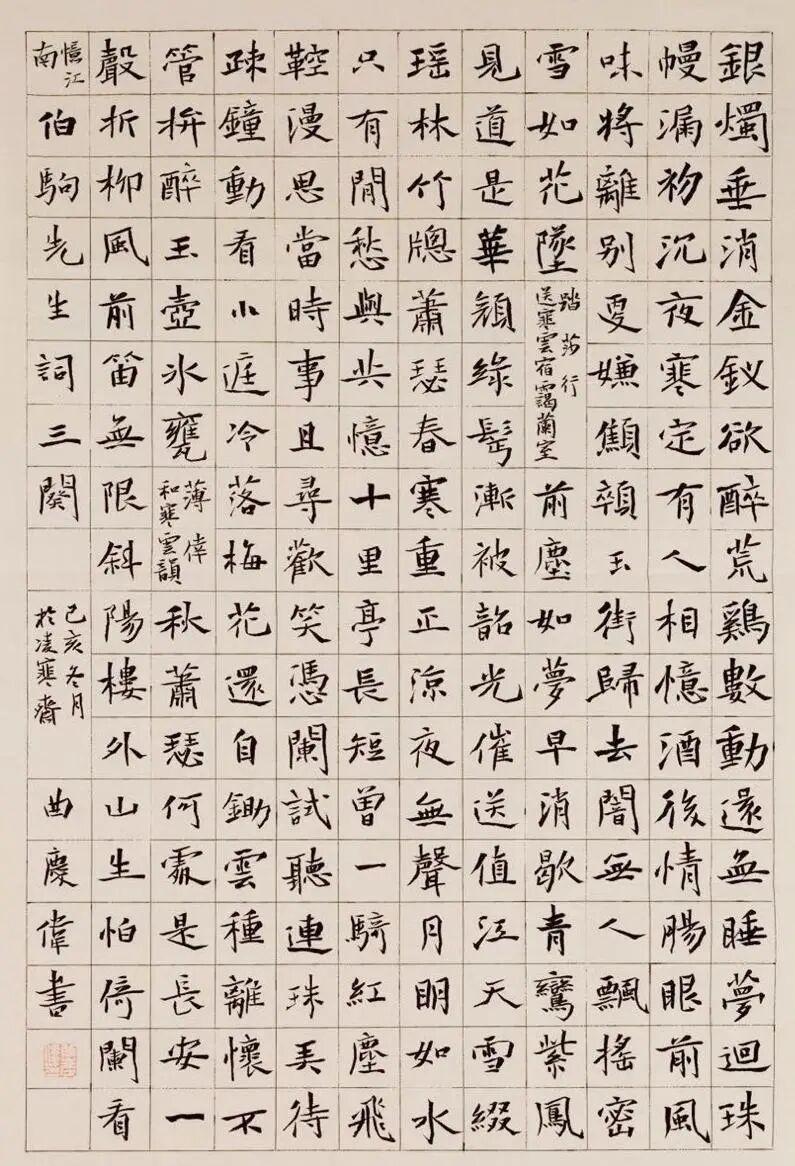 銀燭垂消金釵欲醉荒鷄數動還無睡夢迴珠
幔漏初沉夜寒定有人相憶酒後情腸眼前風
味將離別更嫌顦顇玉街歸去闇無人飄搖密
雪如花墜
踏莎行
送寒雲宿靄蘭室
前塵如夢早消歇青鸞紫鳳
見道是華顛綠髩漸被韶光催送值江天雪綴
瑶林竹牕蕭瑟春寒重正涼夜無聲月明如水
只有閒愁與共憶十里亭長短曾一騎紅塵飛
鞚漫思當時事且尋歡笑憑闌試聽連珠美待
疎鐘動看小庭冷落梅花還自鋤雲種離懷不
管拚醉玉壺冰甕
薄倖
和寒雲韻
秋蕭瑟何處是長安一
聲折柳風前笛無限斜陽樓外山生怕倚闌看
憶江
南
伯駒先生詞三闋
己亥冬月
於凌寒齋
曲慶偉書